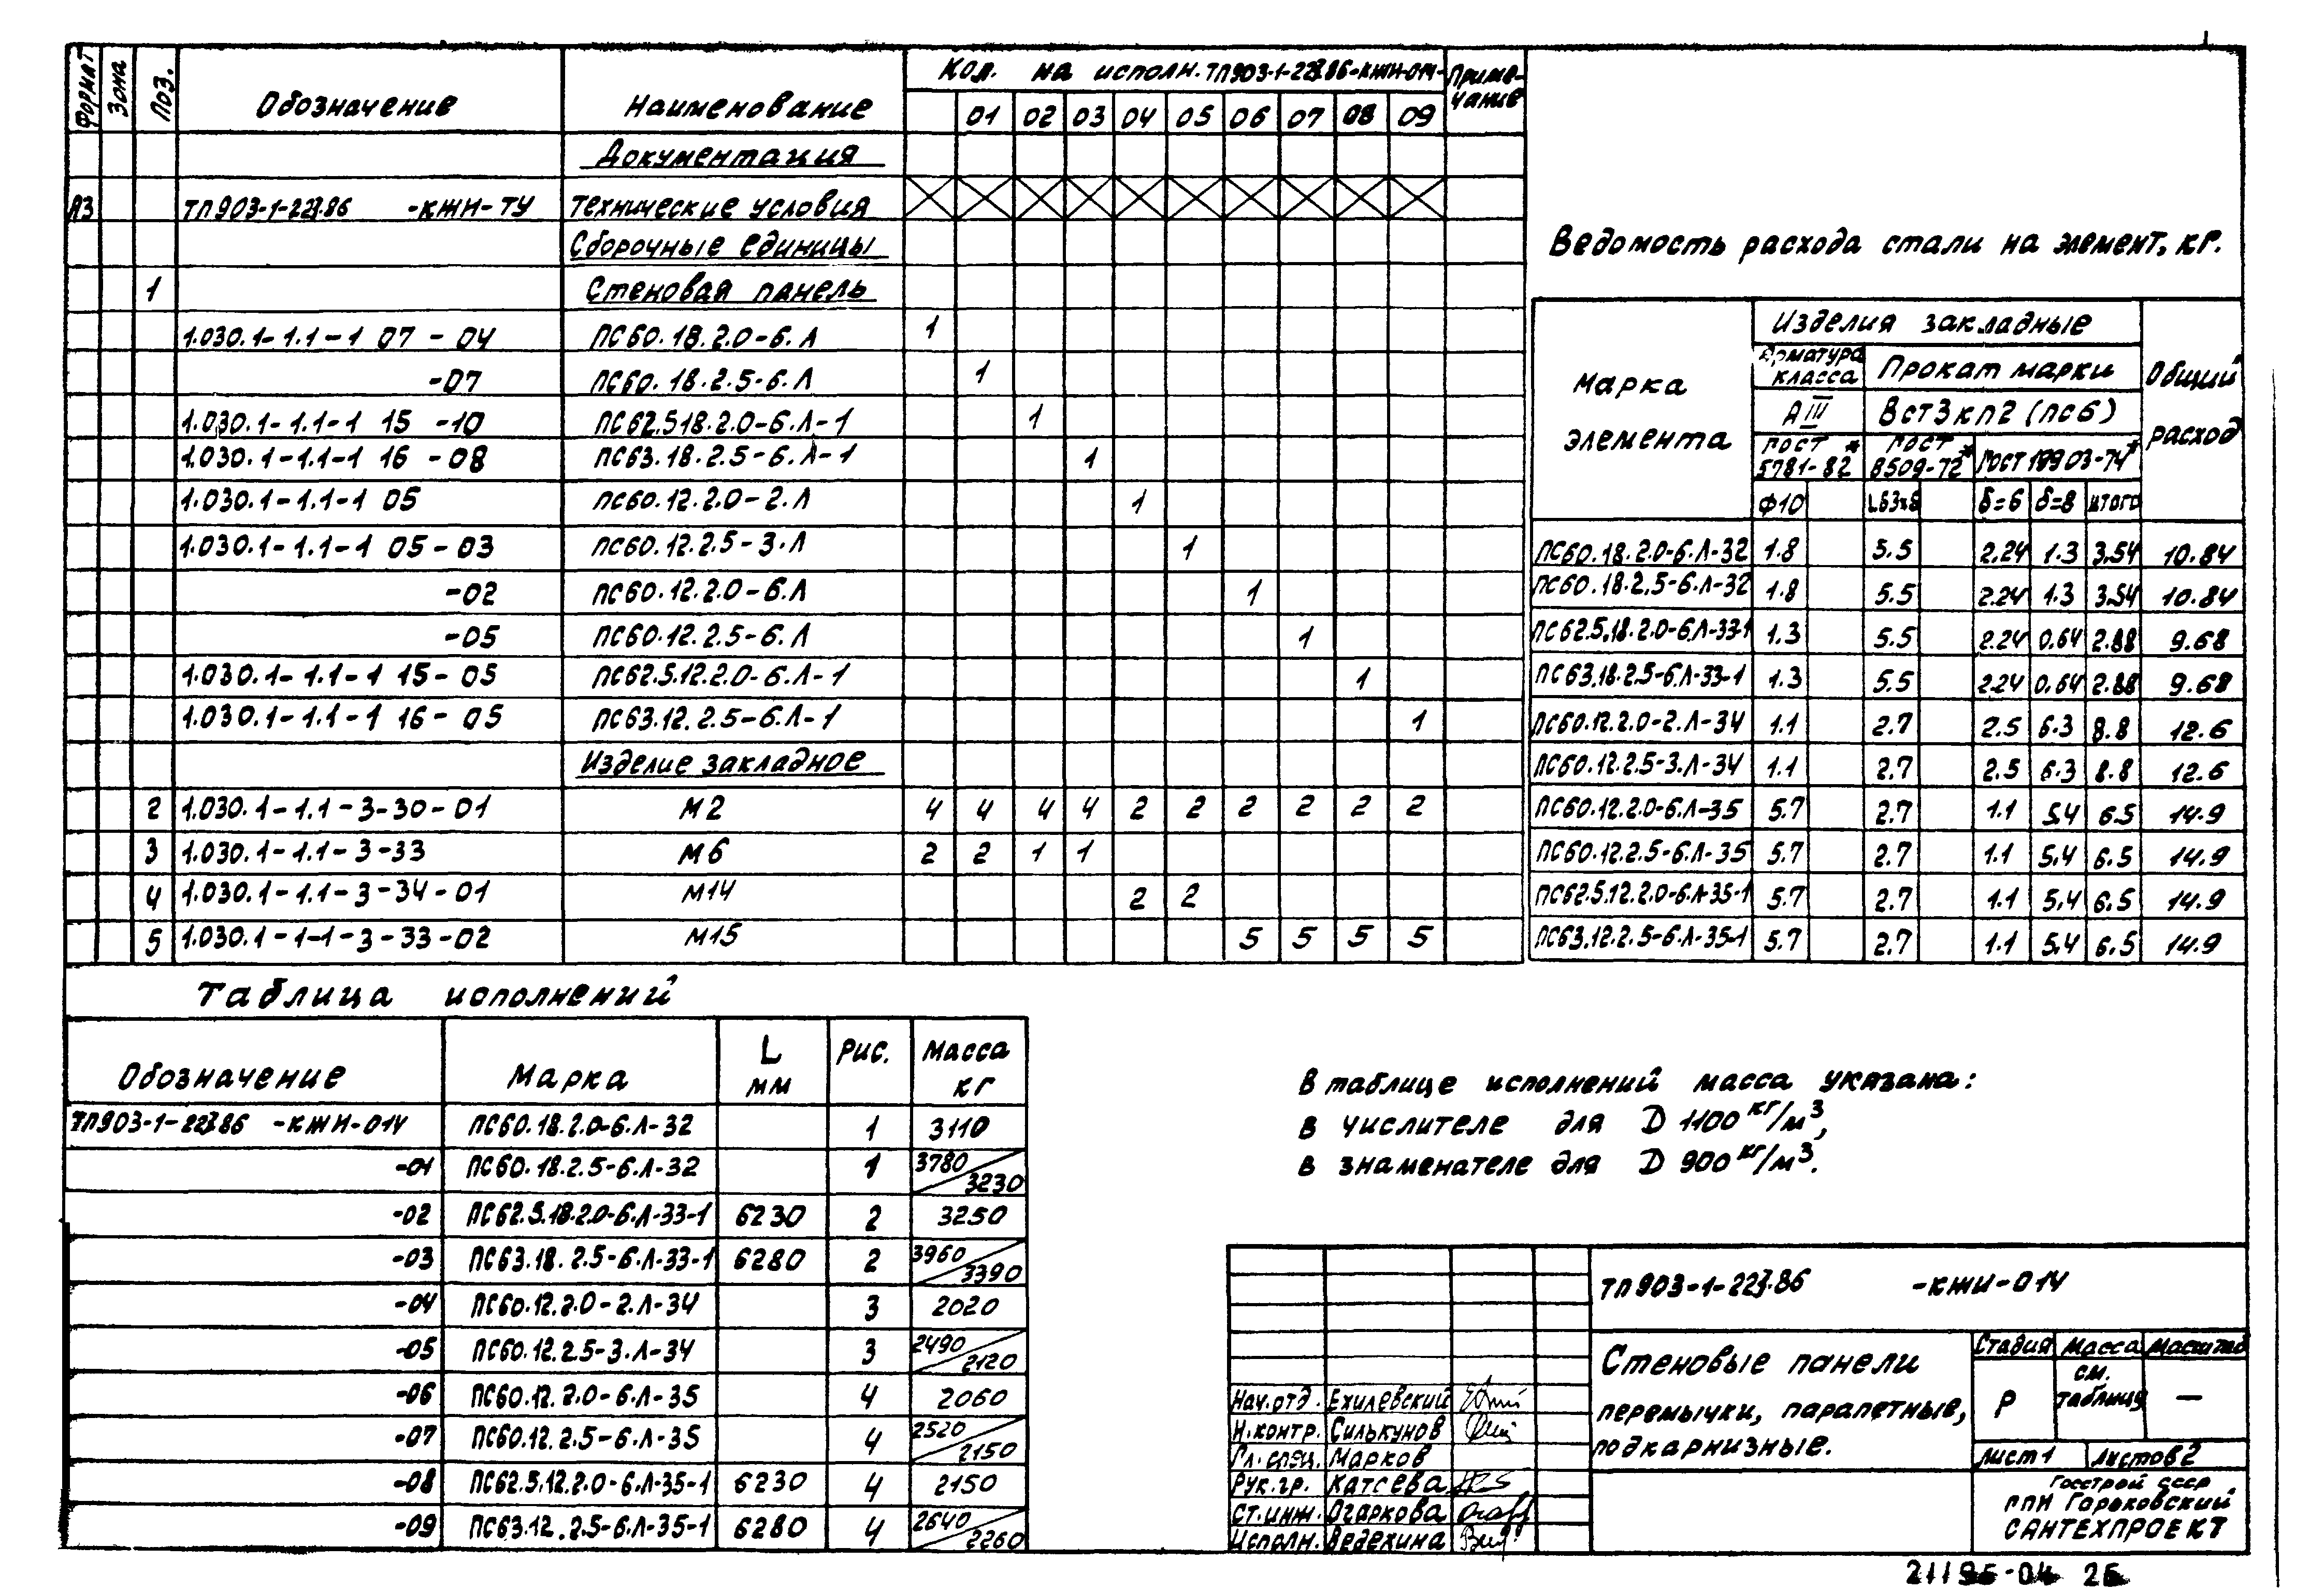 Формат Зона Поз. Обозначение Наименование Кол. на исполн. ТП903-1-223.86-КЖИ-014- Приме-
чание
01 02 03 04 05 06 07 08 09
Документация
А3 ТП903-1-223.86 -КЖИ-ТУ Технические условия
Сборочные единицы
1 Стеновая панель
1.030.1-1.1-1 07-04 ПС60.18.2.0-6.Л 1
-07 ПС60.18.2.5-6.Л 1
1.030.1-1.1-1 15-10 ПС62.5.18.2.0-6.Л-1 1
1.030.1-1.1-1 16-08 ПС63.18.2.5-6.Л-1 1
1.030.1-1.1-1 05 ПС60.12.2.0-2.Л 1
1.030.1-1.1-1 05-03 ПС60.12.2.5-3.Л 1
-02 ПС60.12.2.0-6.Л 1
-05 ПС60.12.2.5-6.Л 1
1.030.1-1.1-1 15-05 ПС62.5.12.2.0-6.Л-1 1
1.030.1-1.1-1 16-05 ПС63.12.2.5-6.Л-1 1
Изделие закладное
2 1.030.1-1.1-3-30-01 М2 4 4 4 4 2 2 2 2 2 2
3 1.030.1-1.1-3-33 М6 2 2 1 1
4 1.030.1-1.1-3-34-01 М14 2 2
5 1.030.1-1-1-3-33-02 М15 5 5 5 5
Ведомость расхода стали на элемент, кг.
Марка
элемента
Изделия закладные
Общий
расход
Арматура
класса
Прокат марки
АIII ВСт3кп2 (пс6)
ГОСТ *
5781-82
ГОСТ *
8509-72
ГОСТ 19903-74*
Ф10 L63х6 δ=6 δ=8 итого
ПС60.18.2.0-6.Л-32 1.8 5.5 2.24 1.3 3.54 10.84
ПС60.18.2.5-6.Л-32 1.8 5.5 2.24 1.3 3.54 10.84
ПС62.5.18.2.0-6.Л-33-1 1.3 5.5 2.24 0.64 2.88 9.68
ПС63.18.2.5-6.Л-33-1 1.3 5.5 2.24 0.64 2.88 9.68
ПС60.12.2.0-2.Л-34 1.1 2.7 2.5 6.3 8.8 12.6
ПС60.12.2.5-3.Л-34 1.1 2.7 2.5 6.3 8.8 12.6
ПС60.12.2.0-6.Л-35 5.7 2.7 1.1 5.4 6.5 14.9
ПС60.12.2.5-6.Л-35 5.7 2.7 1.1 5.4 6.5 14.9
ПС62.5.12.2.0-6.Л-35-1 5.7 2.7 1.1 5.4 6.5 14.9
ПС63.12.2.5-6.Л-35-1 5.7 2.7 1.1 5.4 6.5 14.9
Таблица исполнений
Обозначение Марка L мм Рис. Масса кг
ТП903-1-223.86 -КЖИ-014 ПС60.18.2.0-6.Л-32 1 3110
-01 ПС60.18.2.5-6.Л-32 1 3780/3230
-02 ПС62.5.18.2.0-6.Л-33-1 6230 2 3250
-03 ПС63.18.2.5-6.Л-33-1 6280 2 3960/3390
-04 ПС60.12.2.0-2.Л-34 3 2020
-05 ПС60.12.2.5-3.Л-34 3 2490/2120
-06 ПС60.12.2.0-6.Л-35 4 2060
-07 ПС60.12.2.5-6.Л-35 4 2520/2150
-08 ПС62.5.12.2.0-6.Л-35-1 6230 4 2150
-09 ПС63.12.2.5-6.Л-35-1 6280 4 2640/2260
В таблице исполнений масса указана:
в числителе для D 1100 кг/м³,
в знаменателе для D 900 кг/м³.
ТП903-1-223.86 -КЖИ-014
Стеновые панели
перемычки, парапетные,
подкарнизные.
Стадия Масса Масштаб
Р см. таблицу —
Лист 1 Листов 2
Госстрой СССР
ГПИ Горьковский
САНТЕХПРОЕКТ
Нач.отд. Ехилевский
Н.контр. Силькунов
Гл.спец. Марков
Рук.гр. Катсева
Ст.инж. Огаркова
Исполн. Ведехина